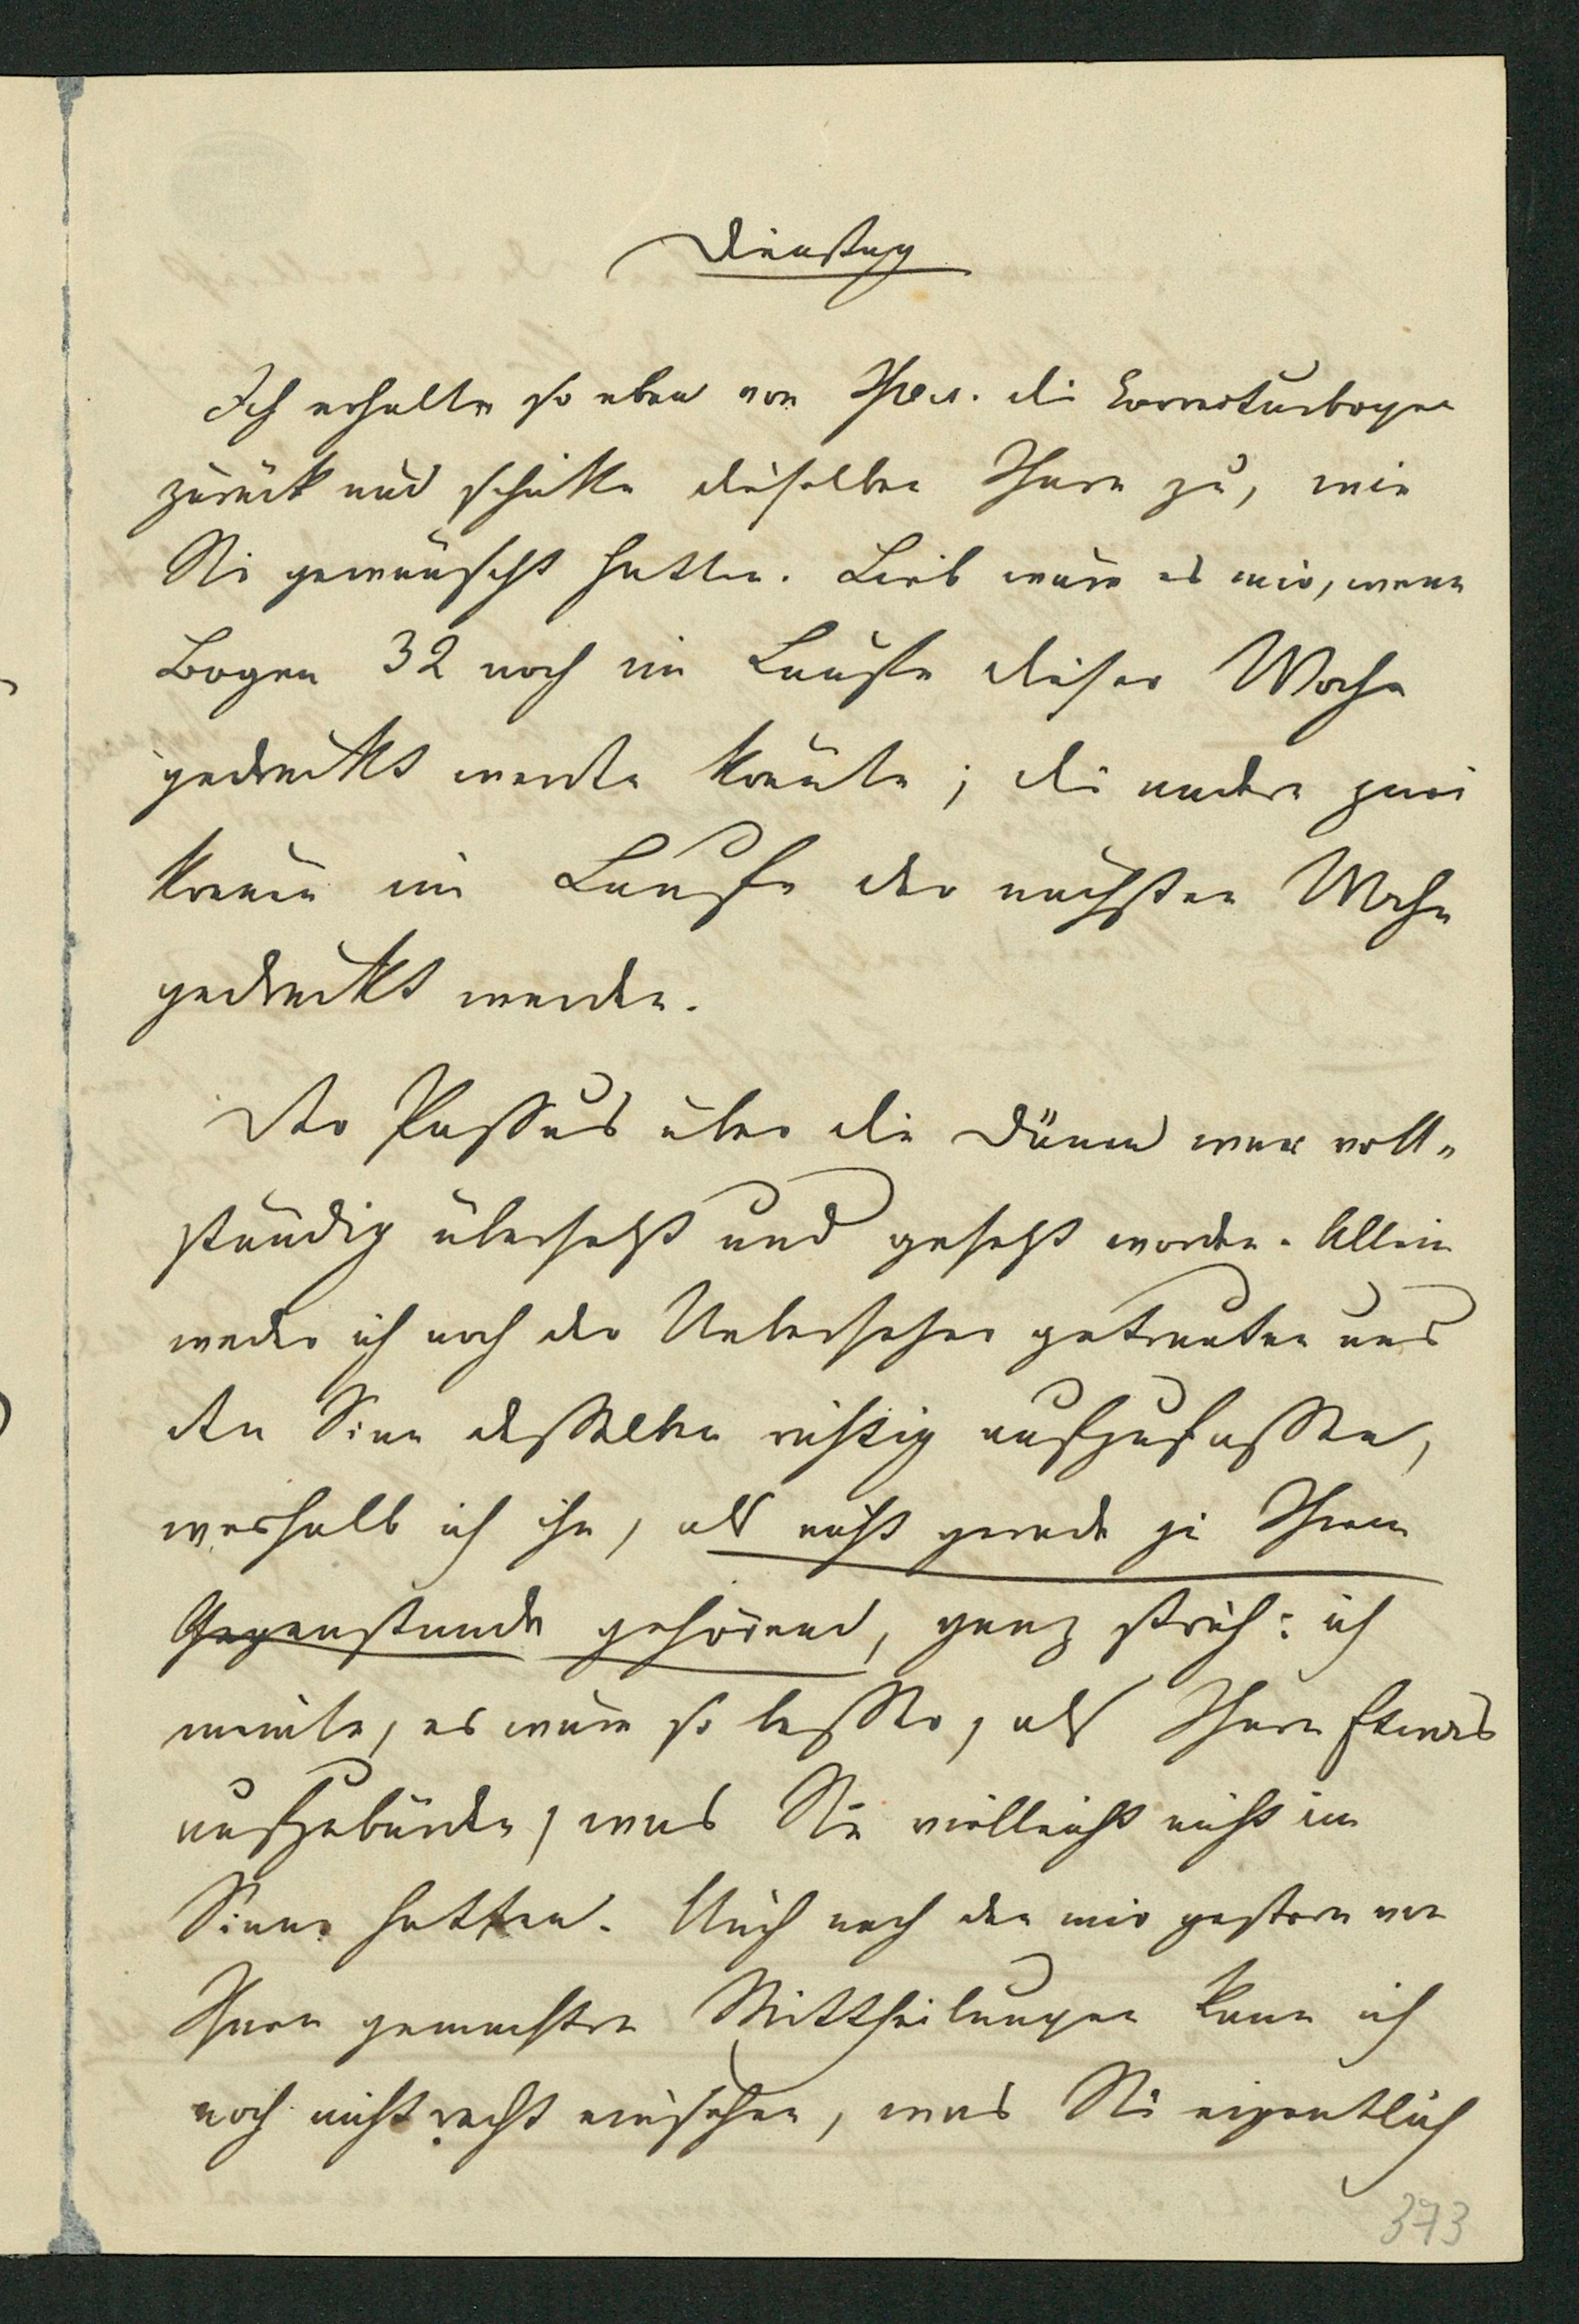 Dienstag
Ich erhalte so eben von die Correcturbogen
zurück und schicke dieselben Ihnen zu, wie
Sie gewünscht hatten. Lieb wäre es mir, wenn
Bogen 32 noch im Laufe dieser Woche
gedruckt werden könnte; die andern zwei
können im Laufe der nächsten Woche
gedruckt werden.
Der Passus über die Dünen war voll-
ständig übersetzt und gesetzt worden. Allein
weder ich noch der Uebersetzer getrauten uns
den Sinn desselben richtig aufzufassen,
weshalb ich ihn, als nicht gerade zu Ihrem
Gegenstande gehörend, ganz strich: ich
meinte, es wäre so besser, als Ihnen Etwas
aufzubürden, was Sie vielleicht nicht im
Sinne hatten. Auch nach den mir gestern von
Ihnen gemachten Mittheilungen kann ich
noch nicht recht einsehen, was Sie eigentlich
373